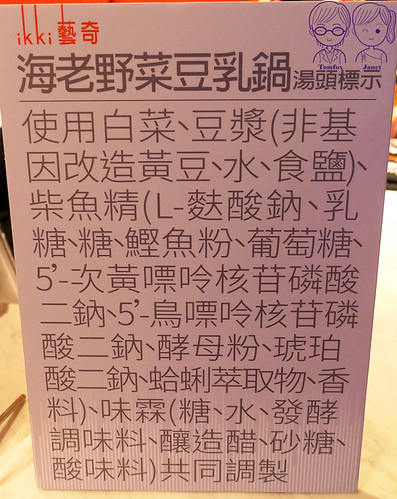 ikki藝奇
Tomfox Janet
海老野菜豆乳鍋湯頭標示
使用白菜、豆漿(非基
因改造黃豆、水、食鹽)、
柴魚精(L-麩酸鈉、乳
糖、糖、鰹魚粉、葡萄糖、
5’-次黃嘌呤核苷磷酸
二鈉、5’-鳥嘌呤核苷磷
酸二鈉、酵母粉、琥珀
酸二鈉、蛤蜊萃取物、香
料)、味霖(糖、水、發酵
調味料、釀造醋、砂糖、
酸味料)共同調製